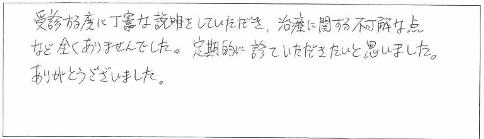 受診する度に丁寧な説明をしていただき、治療に関する不可解な点
など全くありませんでした。定期的に診ていただきたいと思いました。
ありがとうございました。